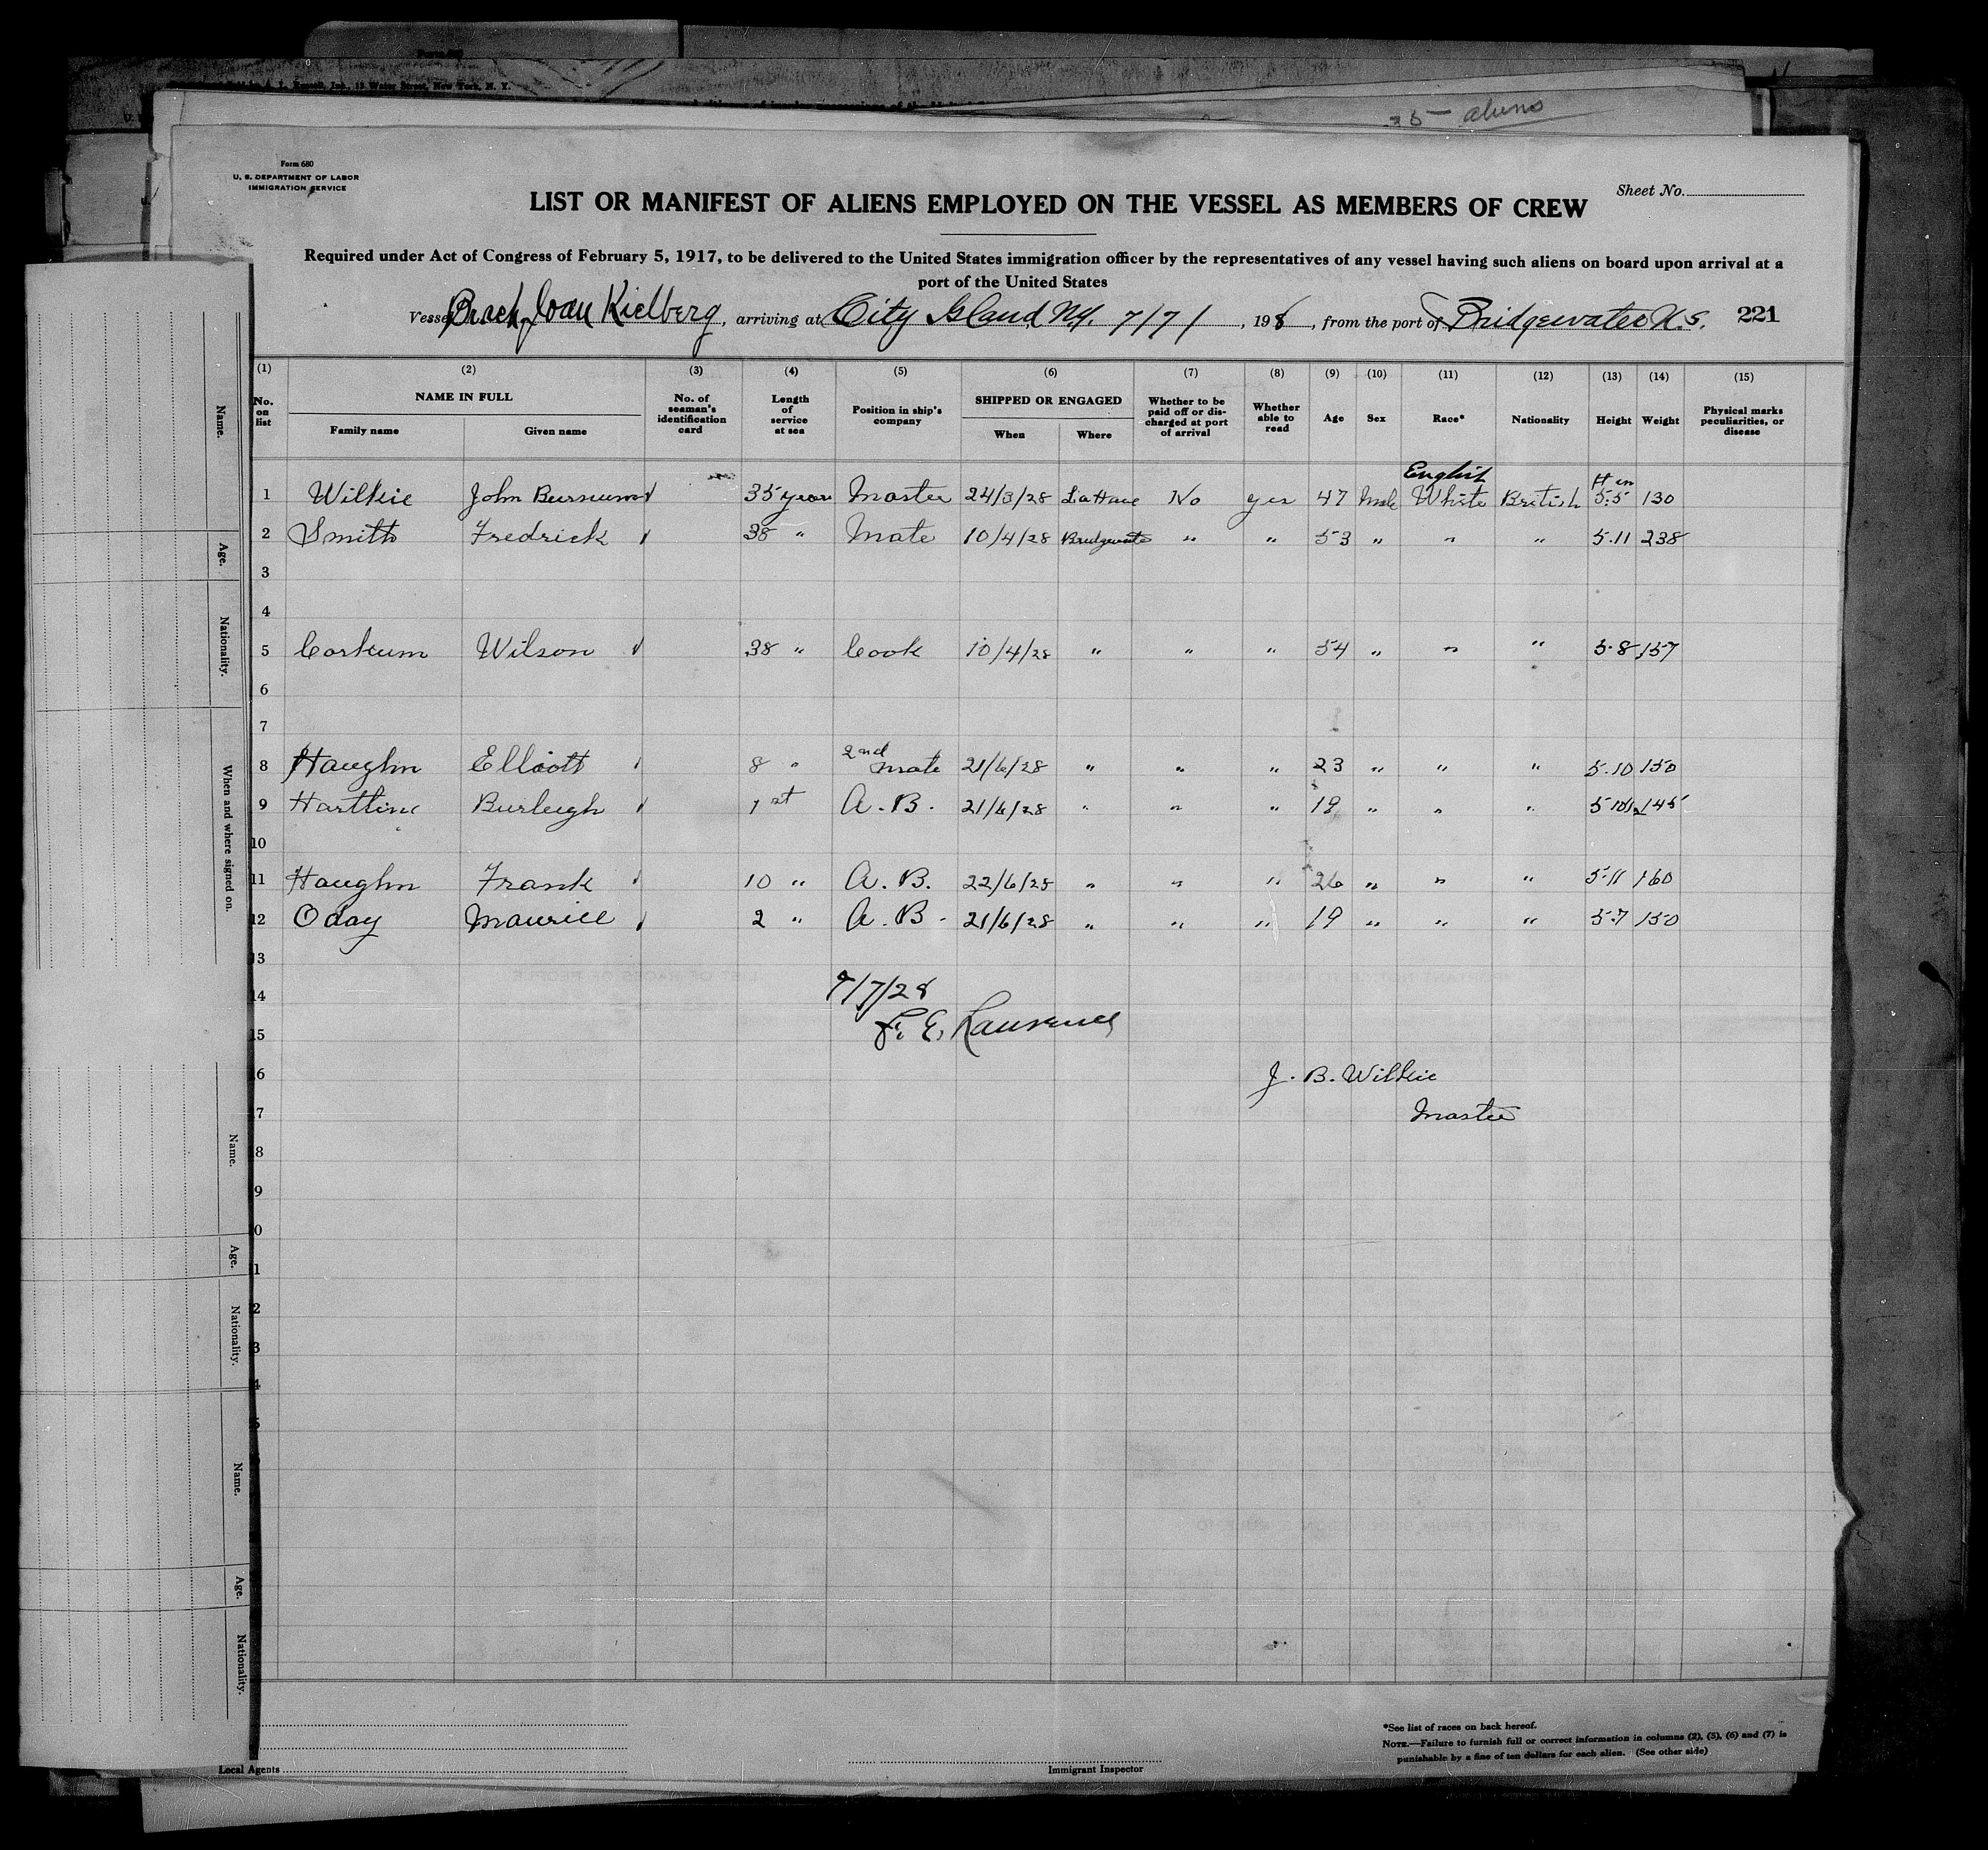 Form 680
A. L. Russell, Inc., 15 Water Street, New York, N. Y.
35 — aliens
Form 680
U. S. DEPARTMENT OF LABOR
IMMIGRATION SERVICE
Sheet No.
LIST OR MANIFEST OF ALIENS EMPLOYED ON THE VESSEL AS MEMBERS OF CREW
Required under Act of Congress of February 5, 1917, to be delivered to the United States immigration officer by the representatives of any vessel having such aliens on board upon arrival at a
port of the United States
Vessel Joan Kielberg, arriving at City Island NY. 7/7/, 198, from the port of Bridgewater N.S. 221
(1) (2) (3) (4) (5) (6) (7) (8) (9) (10) (11) (12) (13) (14) (15)
No. on list NAME IN FULL Family name Given name No. of seaman's identification card Length of service at sea Position in ship's company SHIPPED OR ENGAGED When Where Whether to be paid off or discharged at port of arrival Whether able to read Age Sex Race* Nationality Height Weight Physical marks peculiarities, or disease
English H in
1 Wilkie John 35 years Master 24/3/28 LaHave No yes 47 Male White British 5.5 130
2 Smith Fredrick 38 " Mate 10/4/28 Bridgewater " " 53 " " " 5.11 238
3
4
5 Corkum Wilson 38 " Cook 10/4/28 " " " 54 " " " 5.8 157
6
7
8 Haughn Elliott 8 " 2nd Mate 21/6/28 " " " 23 " " " 5.10 150
9 Hartline Burleigh 1st A.B. 21/6/28 " " " 19 " " " 5 10½ 145
10
11 Haughn Frank 10 " A.B. 22/6/28 " " " 26 " " " 5.11 160
12 Oday Maurice 2 " A.B. 21/6/28 " " " 19 " " " 5.7 150
13
14 7/7/28
15 F. E. Laurence
6 J. B. Wilkie
7 Master
8
9
0
1
2
3
4
5
Name.
Age.
Nationality.
When and where signed on.
Name.
Age.
Nationality.
Name.
Age.
Nationality.
*See list of races on back hereof.
NOTE.—Failure to furnish full or correct information in columns (2), (5), (6) and (7) is
punishable by a fine of ten dollars for each alien. (See other side)
Local Agents
Immigrant Inspector